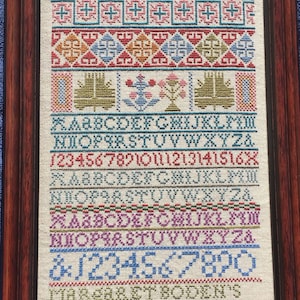 ABCDEFGHIJKLM
NOPQRSTUVWXYZ&
12345678910111213141516
ABCDEFGHIJKLM
NOPQRSTUVWXYZ&
ABCDEFGHIJKLM
NOPQRSTUVWXYZ&
&1234567890
MARGARET BODEN'S